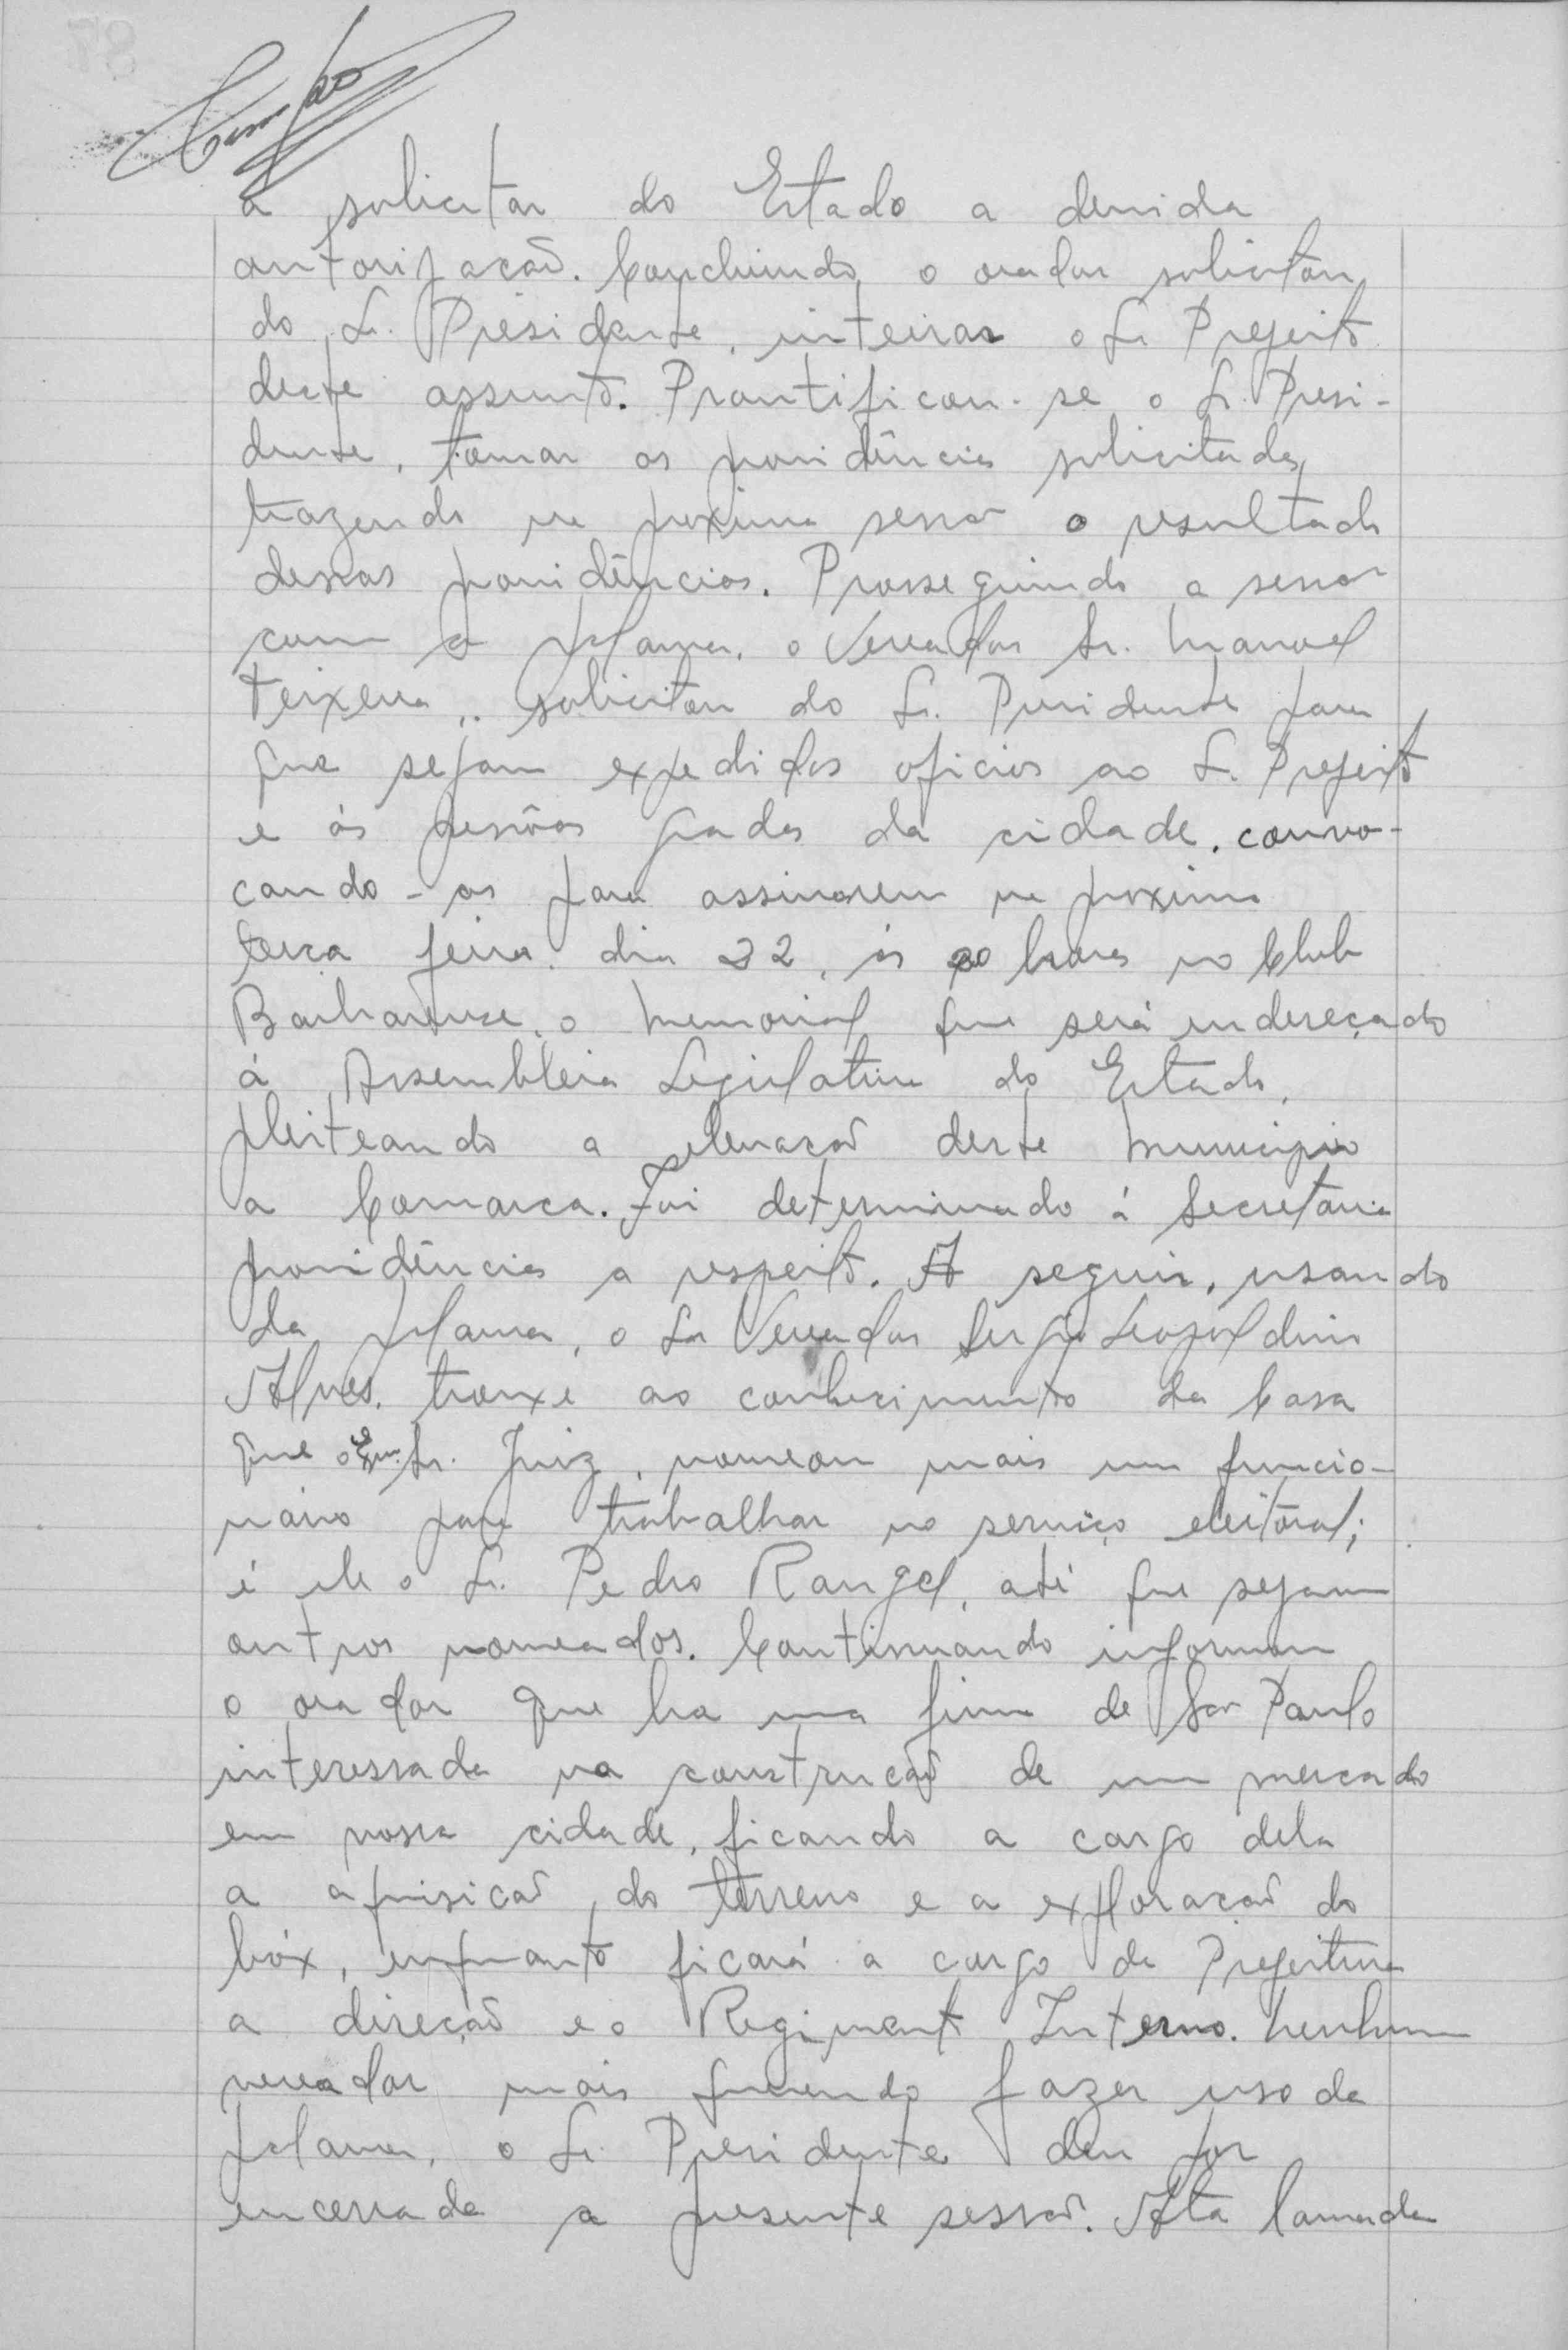 a solicitar do Estado a devida
autorização. Concluindo, o orador solicitou
do Sr. Presidente, inteirar o Sr. Prefeito
deste assunto. Prontificou-se o Sr. Presi-
dente, tomar as providências solicitadas,
trazendo na proxima sessão o resultado
dessas providências. Prosseguindo a sessão
com a palavra, o Vereador Sr. Manoel
Teixeira, solicitou do Sr. Presidente para
que sejam expedidos oficios ao Sr. Prefeito
e ás pessôas gradas da cidade, convo-
cando-as para assinarem na proxima
terça feira dia 22, ás 20 horas no Club
Barbarense, o Memorial que será endereçado
á Assembleia Legislativa do Estado,
pleiteando a elevação deste Municipio
a Comarca. Foi determinado á Secretaria
providências a respeito. A seguir, usando
da palavra, o Sr Vereador Sergio Leopoldino
Alves, trouxe ao conhecimento da Casa
que o Exmo. Sr. Juiz, nomeou mais um funcio-
nário para trabalhar no serviço eleitoral;
é ele o Sr. Pedro Rangel, até que sejam
outros nomeados. Continuando informou
o orador que ha uma firma de São Paulo
interessada na construção de um mercado
em nossa cidade, ficando a cargo dela
a aquisição do terreno e a exploração do
bóx, enquanto ficará a cargo da Prefeitura
a direção e o Regimento Interno. Nenhum
vereador mais querendo fazer uso da
palavra, o Sr. Presidente deu por
encerrada a presente sessão. Ata lavrada